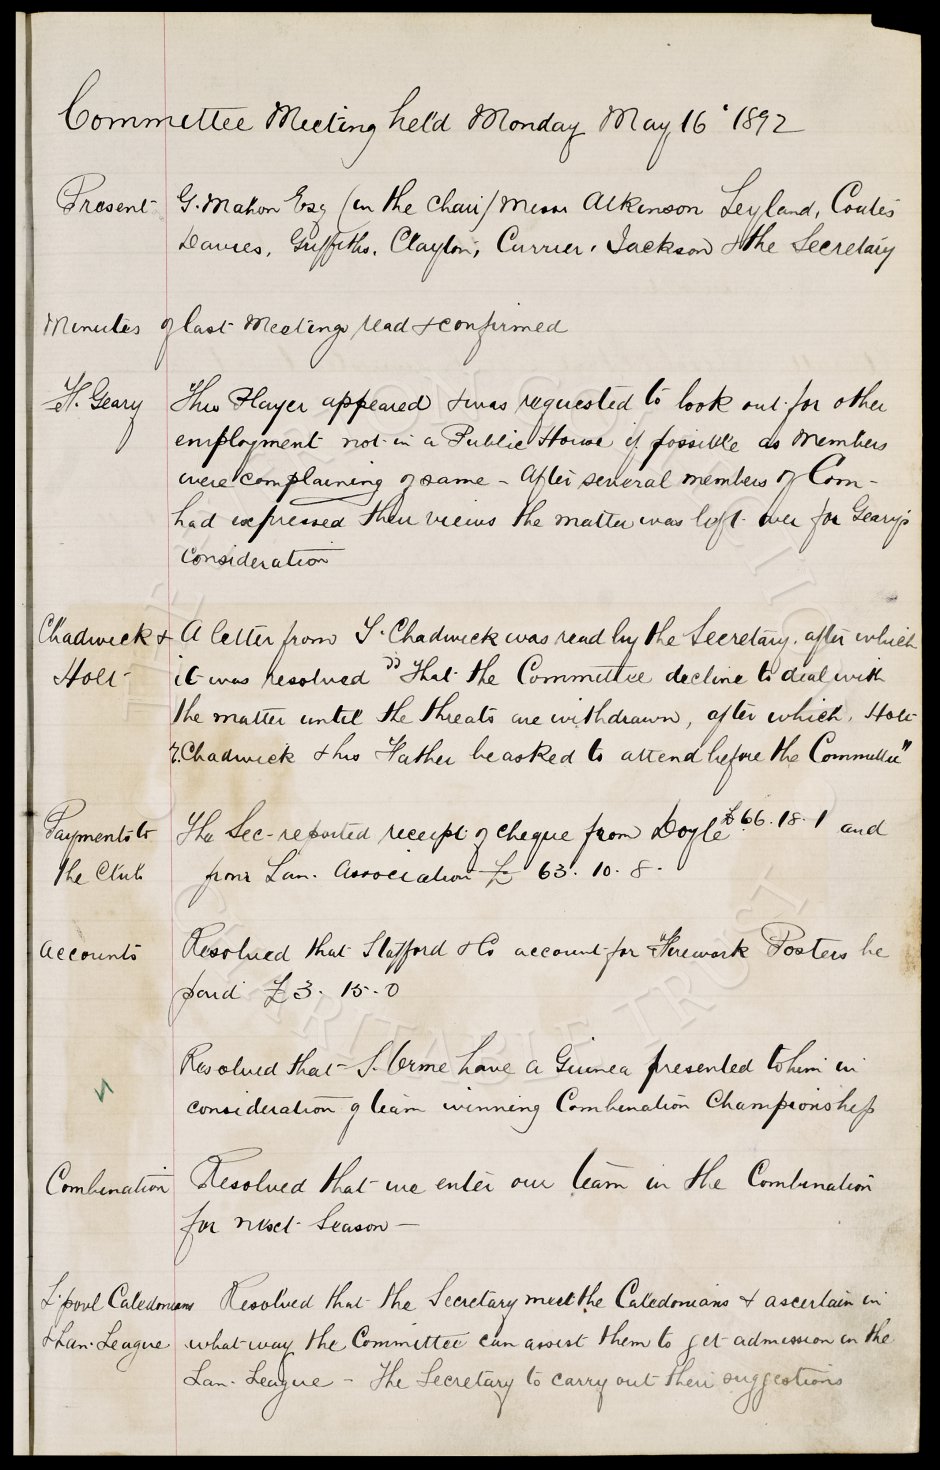 Committee Meeting held Monday May 16 1892
Present G. Mahon Esq (in the chair) Messrs Atkinson Leyland, Coates
Davies, Griffiths, Clayton, Currier, Jackson & the Secretary
Minutes of last Meetings read & confirmed
H. Geary This Player appeared & was requested to look out for other
employment not in a Public House if possible as Members
were complaining of same - After several members of Com-
had expressed their views the matter was left over for Geary's
consideration
Chadwick & A letter from T. Chadwick was read by the Secretary, after which
Holt it was resolved "That the Committee decline to deal with
the matter until the threats are withdrawn, after which, Holt
E. Chadwick & his Father be asked to attend before the Committee"
Payments to The Sec- reported receipt of cheque from Doyle £66.18.1 and
the Club from Lan. Association £63.10.8.
Accounts Resolved that Stafford & Co account for Firework Posters be
paid £3.15.0
Resolved that S. Orme have a Guinea presented to him in
consideration of team winning Combination Championship
Combination Resolved that we enter our team in the Combination
for next Season -
L'pool Caledonians Resolved that the Secretary meet the Caledonians & ascertain in
& Lan. League what way the Committee can assist them to get admission in the
Lan. League - The Secretary to carry out their suggestions
THE EVERTON COLLECTION
CHARITABLE TRUST